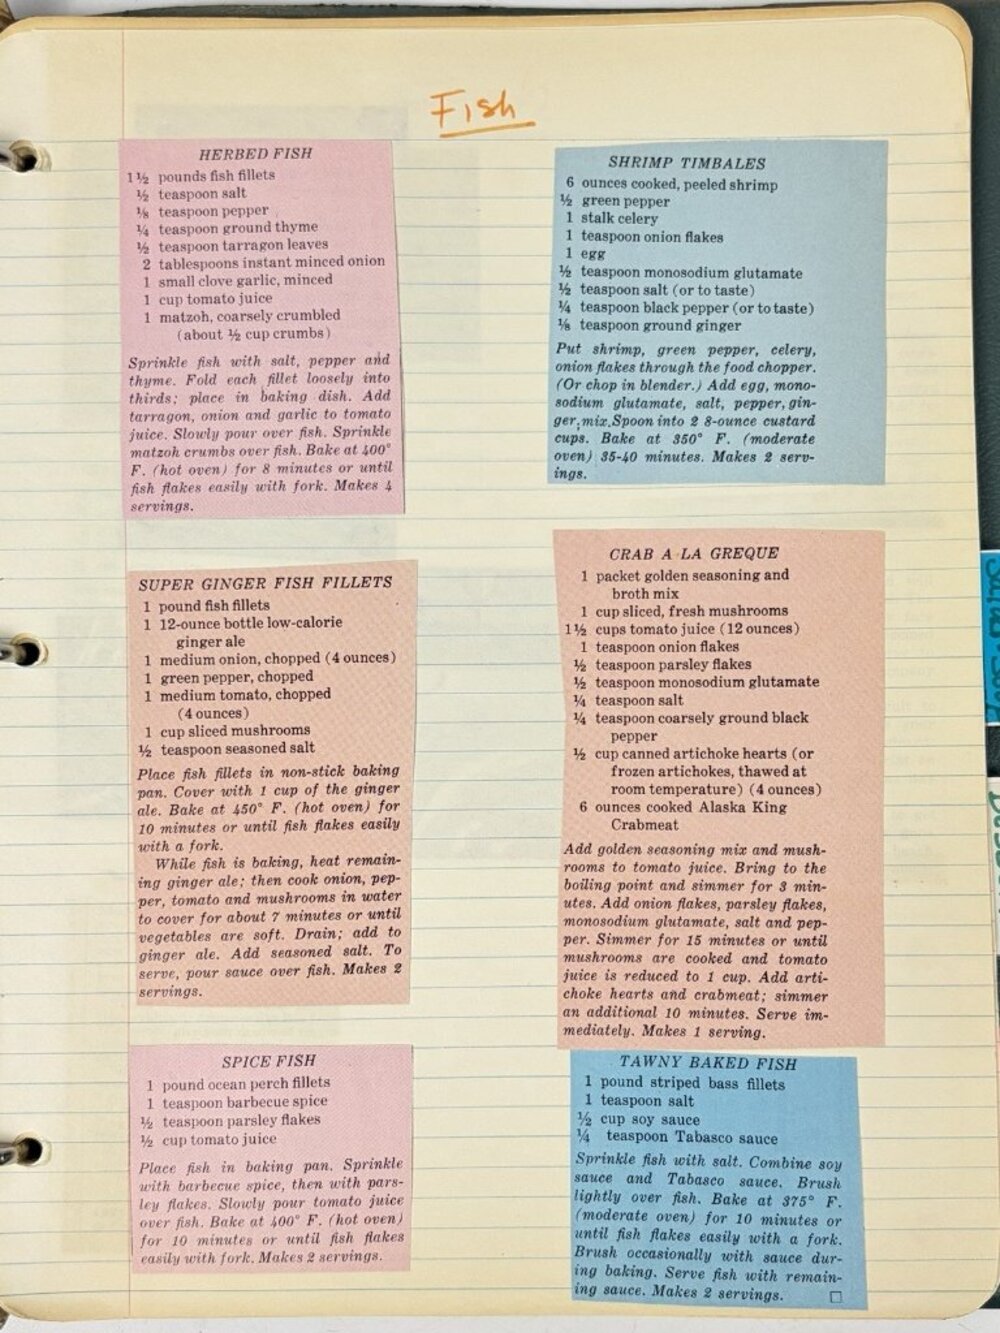 Fish
HERBED FISH
1½ pounds fish fillets
½ teaspoon salt
⅛ teaspoon pepper
¼ teaspoon ground thyme
½ teaspoon tarragon leaves
2 tablespoons instant minced onion
1 small clove garlic, minced
1 cup tomato juice
1 matzoh, coarsely crumbled
(about ½ cup crumbs)
Sprinkle fish with salt, pepper and
thyme. Fold each fillet loosely into
thirds; place in baking dish. Add
tarragon, onion and garlic to tomato
juice. Slowly pour over fish. Sprinkle
matzoh crumbs over fish. Bake at 400°
F. (hot oven) for 8 minutes or until
fish flakes easily with fork. Makes 4
servings.
SUPER GINGER FISH FILLETS
1 pound fish fillets
1 12-ounce bottle low-calorie
ginger ale
1 medium onion, chopped (4 ounces)
1 green pepper, chopped
1 medium tomato, chopped
(4 ounces)
1 cup sliced mushrooms
½ teaspoon seasoned salt
Place fish fillets in non-stick baking
pan. Cover with 1 cup of the ginger
ale. Bake at 450° F. (hot oven) for
10 minutes or until fish flakes easily
with a fork.
While fish is baking, heat remain-
ing ginger ale; then cook onion, pep-
per, tomato and mushrooms in water
to cover for about 7 minutes or until
vegetables are soft. Drain; add to
ginger ale. Add seasoned salt. To
serve, pour sauce over fish. Makes 2
servings.
SPICE FISH
1 pound ocean perch fillets
1 teaspoon barbecue spice
½ teaspoon parsley flakes
½ cup tomato juice
Place fish in baking pan. Sprinkle
with barbecue spice, then with pars-
ley flakes. Slowly pour tomato juice
over fish. Bake at 400° F. (hot oven)
for 10 minutes or until fish flakes
easily with fork. Makes 2 servings.
SHRIMP TIMBALES
6 ounces cooked, peeled shrimp
½ green pepper
1 stalk celery
1 teaspoon onion flakes
1 egg
½ teaspoon monosodium glutamate
½ teaspoon salt (or to taste)
¼ teaspoon black pepper (or to taste)
⅛ teaspoon ground ginger
Put shrimp, green pepper, celery,
onion flakes through the food chopper.
(Or chop in blender.) Add egg, mono-
sodium glutamate, salt, pepper, gin-
ger; mix. Spoon into 2 8-ounce custard
cups. Bake at 350° F. (moderate
oven) 35-40 minutes. Makes 2 serv-
ings.
CRAB A LA GREQUE
1 packet golden seasoning and
broth mix
1 cup sliced, fresh mushrooms
1½ cups tomato juice (12 ounces)
1 teaspoon onion flakes
½ teaspoon parsley flakes
½ teaspoon monosodium glutamate
¼ teaspoon salt
¼ teaspoon coarsely ground black
pepper
½ cup canned artichoke hearts (or
frozen artichokes, thawed at
room temperature) (4 ounces)
6 ounces cooked Alaska King
Crabmeat
Add golden seasoning mix and mush-
rooms to tomato juice. Bring to the
boiling point and simmer for 3 min-
utes. Add onion flakes, parsley flakes,
monosodium glutamate, salt and pep-
per. Simmer for 15 minutes or until
mushrooms are cooked and tomato
juice is reduced to 1 cup. Add arti-
choke hearts and crabmeat; simmer
an additional 10 minutes. Serve im-
mediately. Makes 1 serving.
TAWNY BAKED FISH
1 pound striped bass fillets
1 teaspoon salt
½ cup soy sauce
¼ teaspoon Tabasco sauce
Sprinkle fish with salt. Combine soy
sauce and Tabasco sauce. Brush
lightly over fish. Bake at 375° F.
(moderate oven) for 10 minutes or
until fish flakes easily with a fork.
Brush occasionally with sauce dur-
ing baking. Serve fish with remain-
ing sauce. Makes 2 servings.